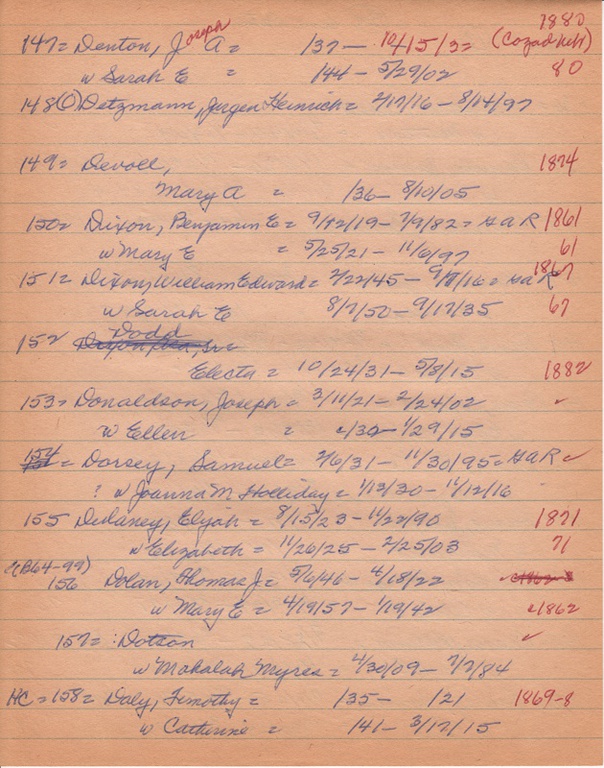 1880
147 = Denton, Joseph A = /37 – 10/15/32 (Cozad Neb)
w Sarah E = /44 – 5/29/02 80
148 (O) Detzmann, Jurgen Heinrich = 2/17/16 – 8/14/97
149 = Devoll, 1874
Mary A = /36 – 8/10/05
150 = Dixon, Benjamin E = 9/12/19 – 7/9/82 = G A R 1861
w Mary E = 5/25/21 – 11/6/97 61
151 = Dixon, William Edward = 2/22/45 – /16 = G A R 1867
w Sarah E 8/7/50 – 9/17/35 67
152 Dodd
Electa = 10/24/31 – 5/8/15 1882
153 = Donaldson, Joseph = 3/11/21 – 2/24/02 ✓
w Ellen = c/32 – 1/29/15
154 = Dorsey, Samuel = 2/6/31 – 11/30/95 = G A R ✓
? w Joanna M. Holliday = 1/13/30 – 11/12/16
155 Dulaney, Elijah = 8/15/23 – 11/22/90 1871
w Elizabeth = 11/26/25 – 2/25/03 71
(B64-99)
156 Dolan, Thomas J = 5/6/46 – 4/18/22
w Mary E = 4/19/57 – 1/19/42 c1862
157 = : Dotson ✓
w Mahalah Myres = 4/30/09 – 7/7/84
HC = 158 = Daly, Timothy = /35 – /21 1869-8
w Catherine = /41 – 3/17/15